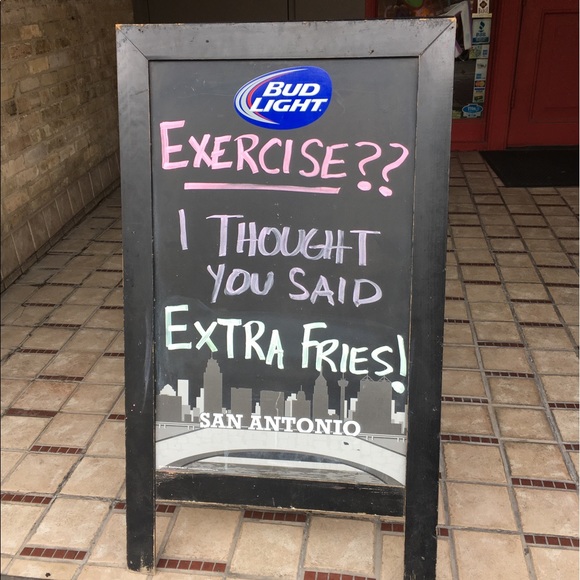 BUD
LIGHT
EXERCISE??
I THOUGHT
YOU SAID
EXTRA FRIES!
SAN ANTONIO